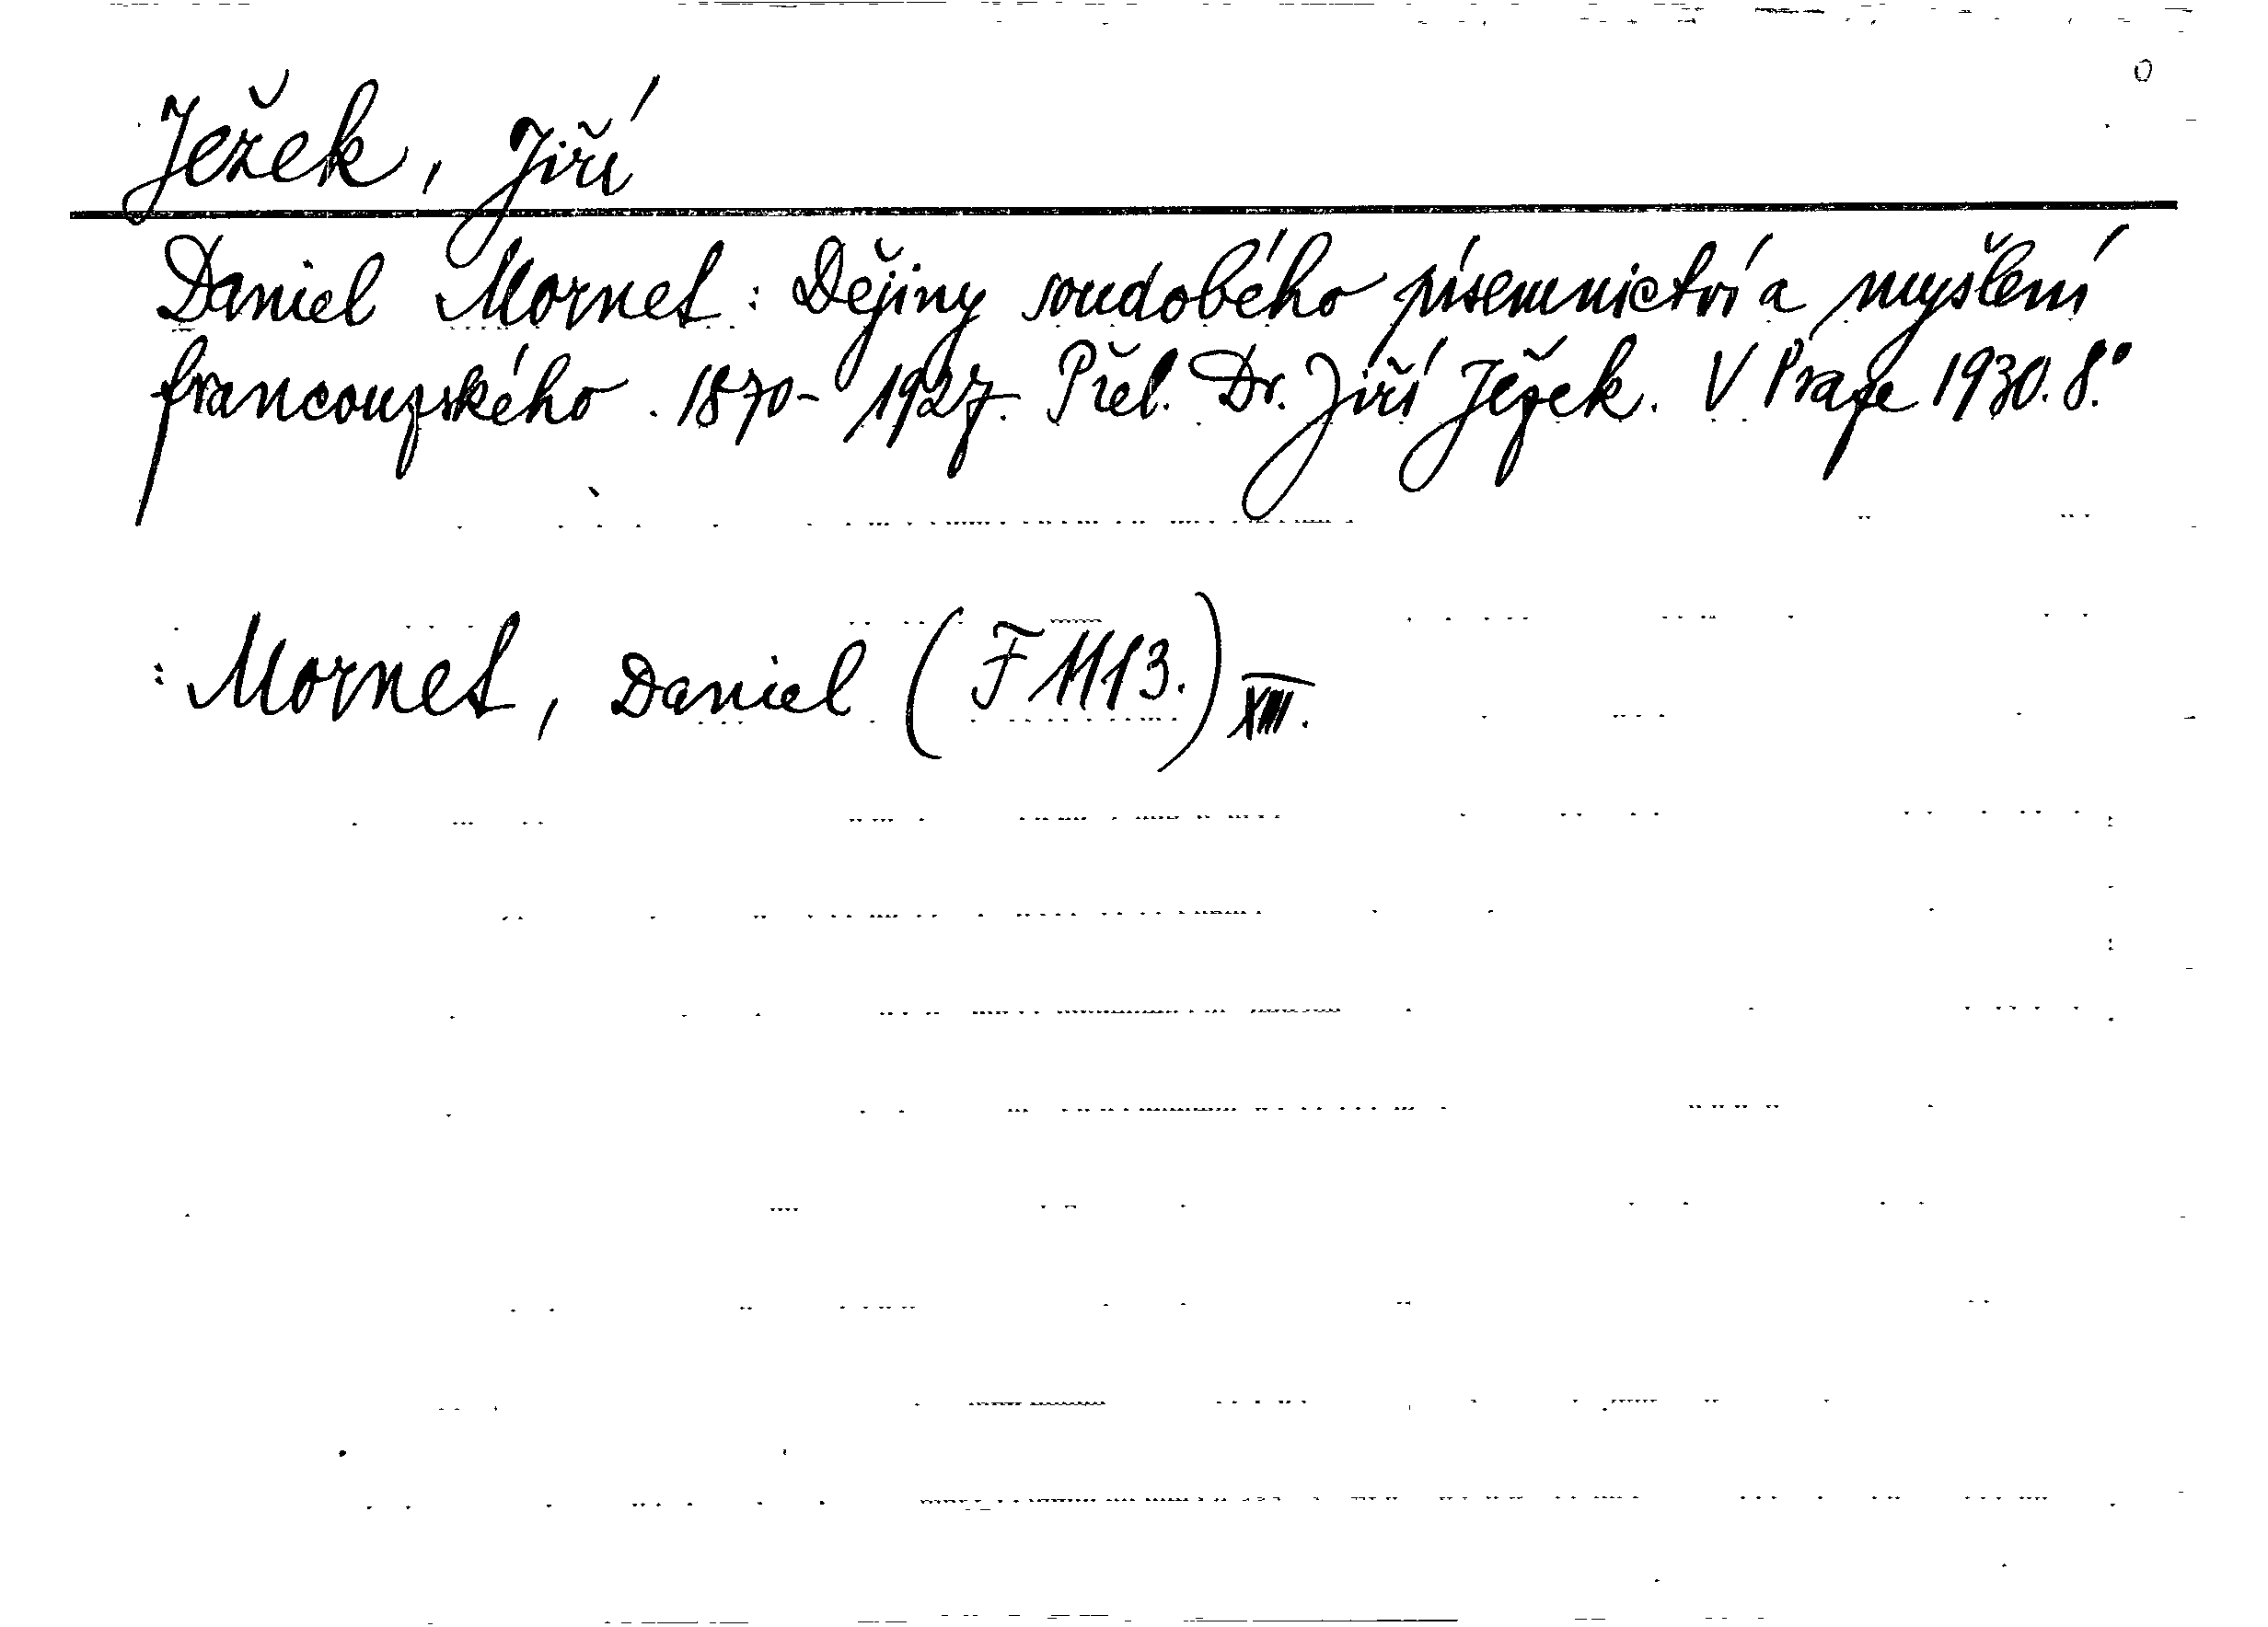 Ježek, Jiří
Daniel Mornet: Dějiny soudobého písemnictví a myšlení
francouzského. 1870-1927. Přel. Dr. Jiří Ježek. V Praze 1930. 8.°
: Mornet, Daniel (F 1113.) XIII.